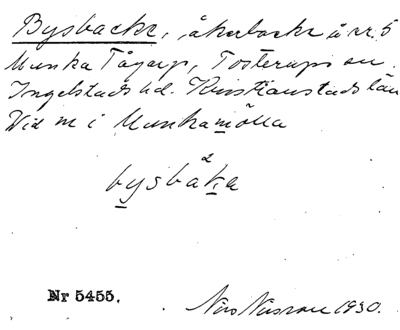 Bysbacke, åkerbacke å nr 5
Munka Tågarp, Tosterups sn.
Ingelstads hd. Kristianstads län
Vid m i Munkamölla
bysbåka
Nr 5455.
Nils Nilsson 1930.